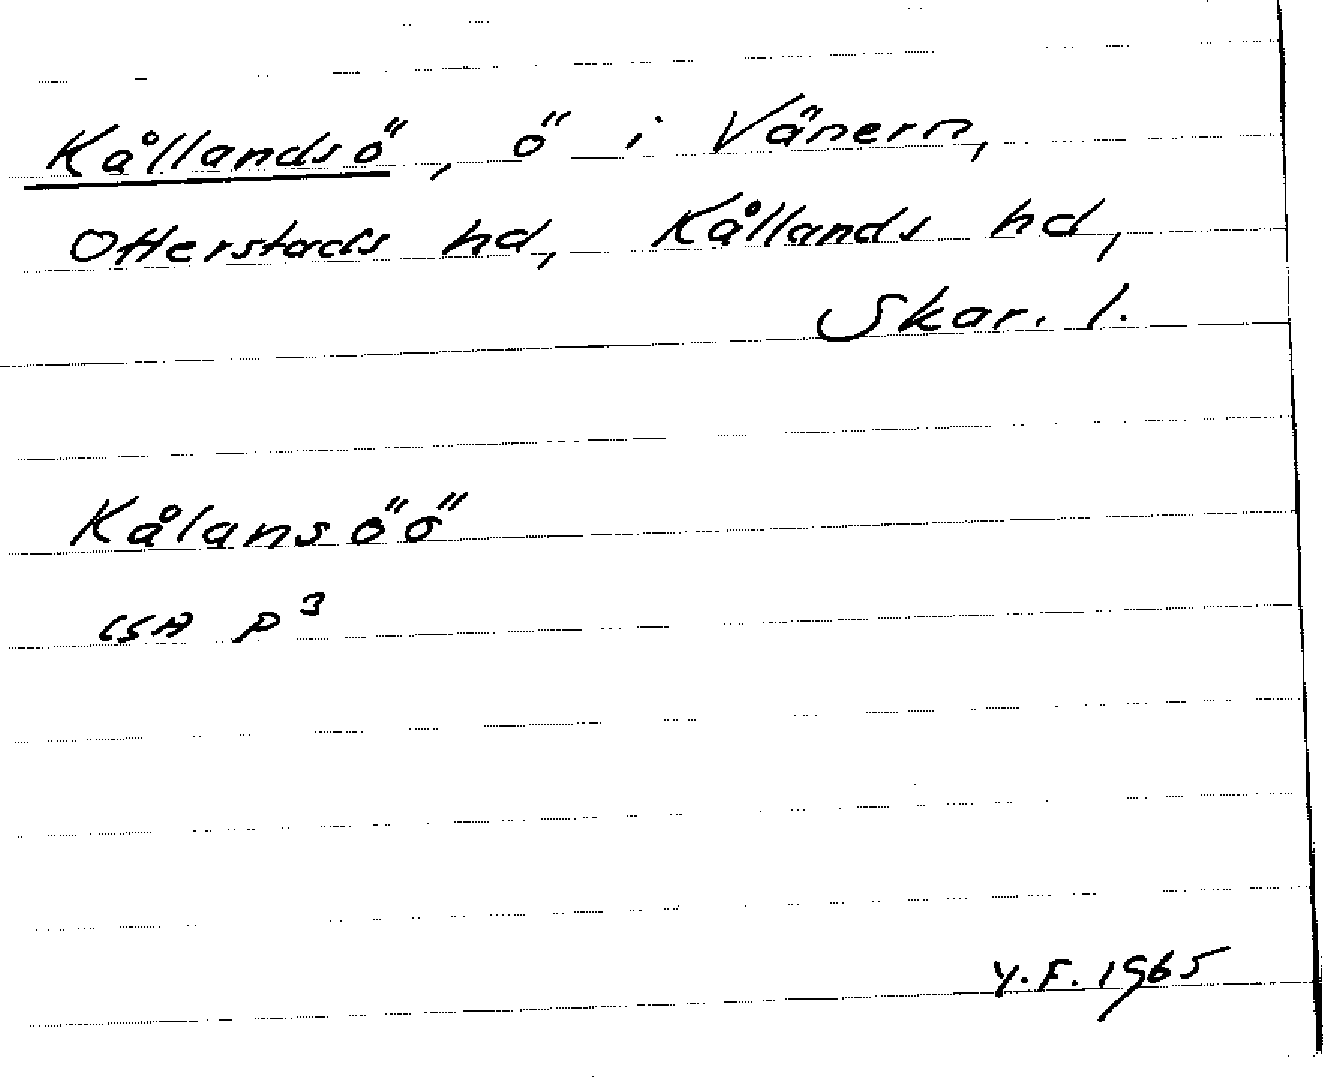 Kållandsö, ö i Vänern,
Otterstads hd, Kållands hd,
Skar. l.
Kålansöö
LSA P³
Y.F. 1965